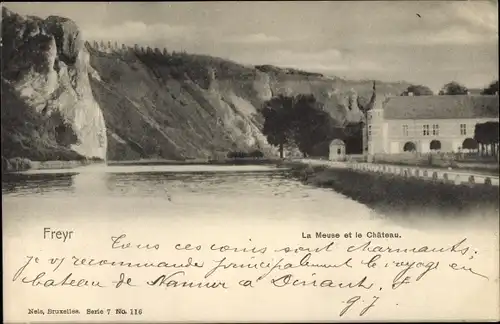 Freyr
La Meuse et le Château.
Tous ces coins sont charmants,
je vs recommande principalement le voyage en
bateau de Namur à Dinant.
g. J.
Nels, Bruxelles. Serie 7 No. 116